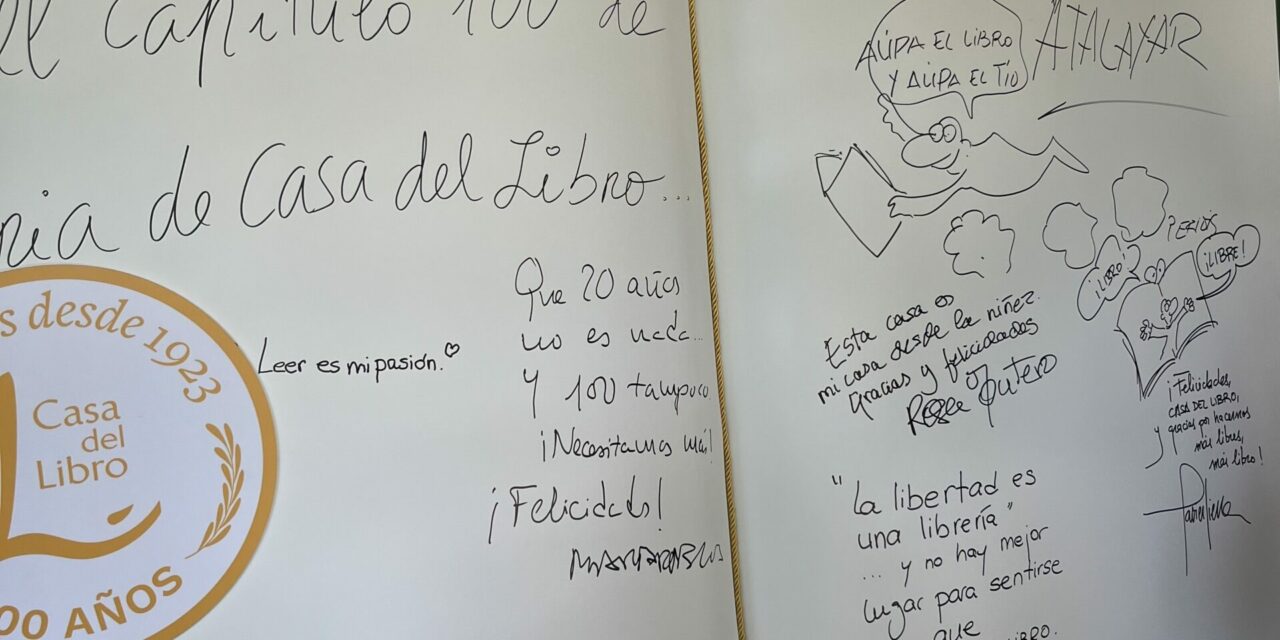 el Capítulo 100 de
ria de Casa del Libro...
s desde 1923
Casa
del
Libro
00 AÑOS
Leer es mi pasión.
Que 20 años
no es nada...
Y 100 tampoco
¡Necesitamos más!
¡Felicidades!
AÚPA EL LIBRO
Y AÚPA EL TÍO
ATALAYAR
PERIDIS
¡LIBRO!
¡LIBRE!
Esta casa es
mi casa desde la niñez.
Gracias y felicidades
¡Felicidades,
CASA DEL LIBRO,
y gracias por hacernos
más libres,
más libro!
"La libertad es
una librería"
... y no hay mejor
lugar para sentirse
que
LIBRO.